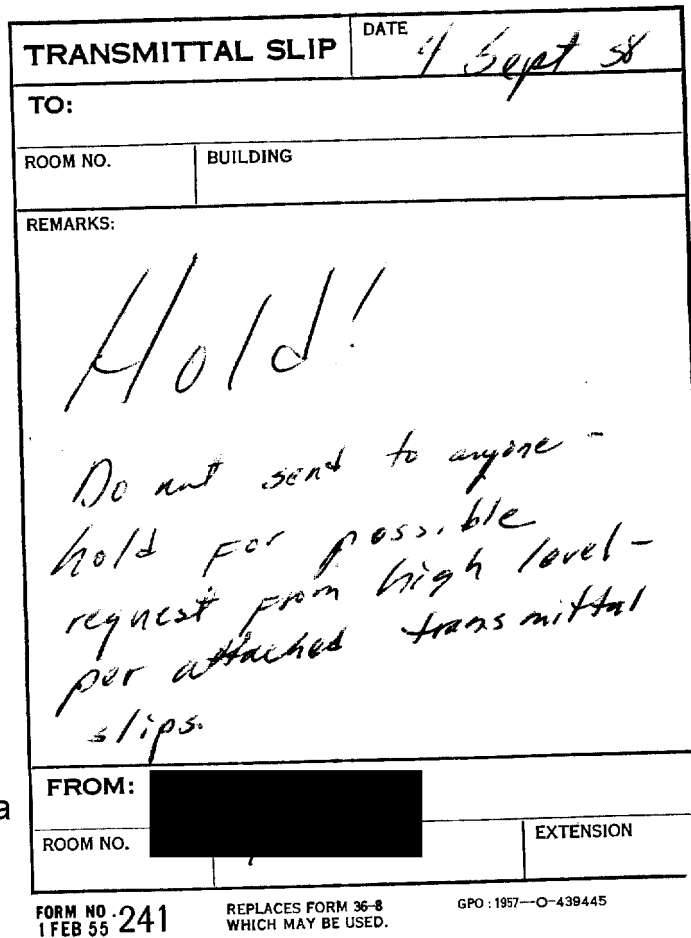 TRANSMITTAL SLIP
DATE
4 Sept 58
TO:
ROOM NO.
BUILDING
REMARKS:
Hold!
Do not send to anyone -
hold for possible
request from high level -
per attached transmittal
slips.
FROM:
a
ROOM NO.
EXTENSION
FORM NO. 241
1 FEB 55
REPLACES FORM 36-8
WHICH MAY BE USED.
GPO : 1957—O-439445